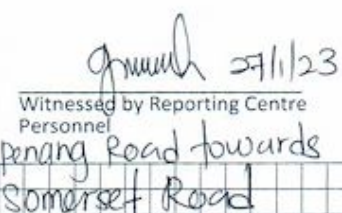 27/1/23
Witnessed by Reporting Centre
Personnel
Penang Road towards
Somerset Road